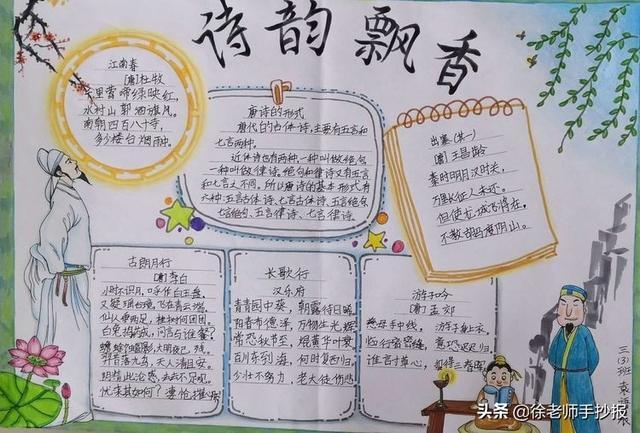 诗韵飘香
江南春
[唐]杜牧
千里莺啼绿映红,
水村山郭酒旗风。
南朝四百八十寺,
多少楼台烟雨中。
唐诗的形式
唐代的古体诗,主要有五言和
七言两种。
近体诗也有两种,一种叫做绝句
一种叫做律诗。绝句和律诗又有五言
和七言之不同。所以唐诗的基本形式有
六种:五言古体诗,七言古体诗,五言绝句
七言绝句,五言律诗,七言律诗。
出塞(其一)
[唐]王昌龄
秦时明月汉时关,
万里长征人未还。
但使龙城飞将在,
不教胡马度阴山。
古朗月行
[唐]李白
小时不识月,呼作白玉盘
又疑瑶台镜,飞在青云端。
仙人垂两足,桂树何团团
白兔捣药成,问言与谁餐?
蟾蜍蚀圆影,大明夜已残。
羿昔落九乌,天人清且安。
阴精此沦惑,去去不足观。
忧来其如何?凄怆摧心肝
长歌行
汉乐府
青青园中葵,朝露待日晞
阳春布德泽,万物生光辉
常恐秋节至,焜黄华叶衰
百川东到海,何时复西归。
少壮不努力,老大徒伤悲
游子吟
[唐]孟郊
慈母手中线,游子身上衣,
临行密密缝,意恐迟迟归
谁言寸草心,报得三春晖
三(3)班
头条 @徐老师手抄报